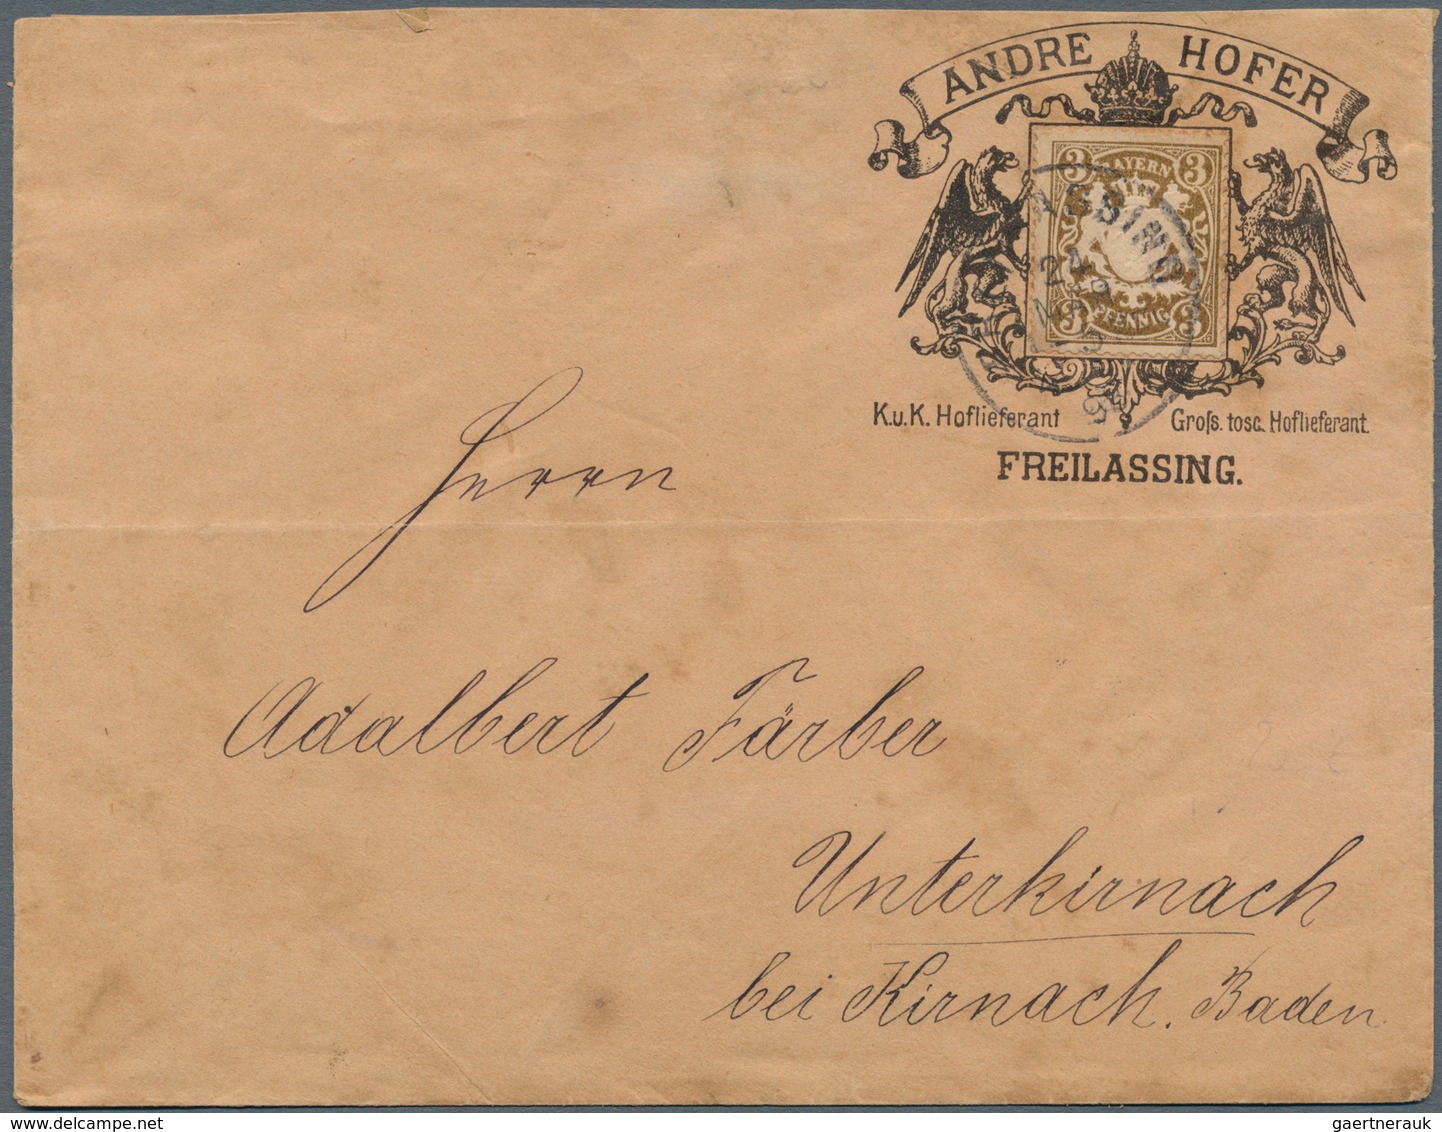 ANDRE HOFER
3 BAYERN 3
3 PFENNIG 3
K.u.K. Hoflieferant Groſs. tosc. Hoflieferant.
FREILASSING.
Herrn
Adalbert Färber
Unterkirnach
bei Kirnach. Baden
gaertnerauk @ delcampe.net